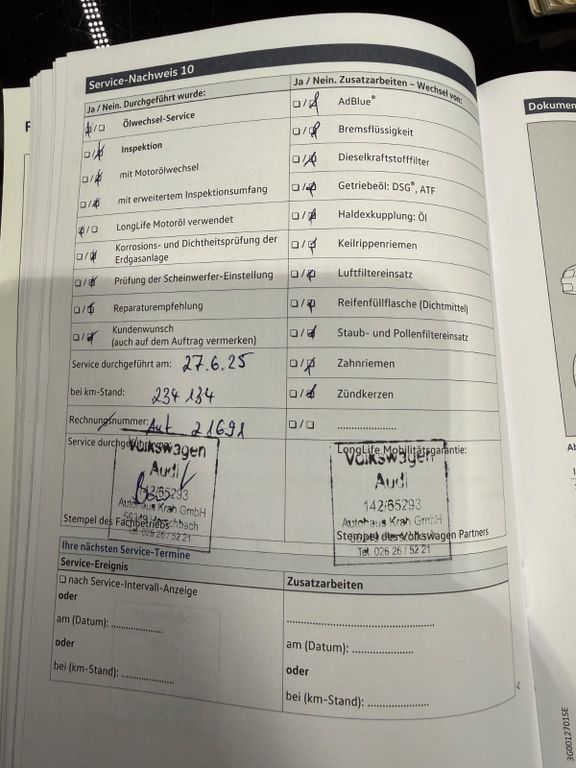 Service-Nachweis 10
Ja / Nein. Durchgeführt wurde:
☒ / ☐ Ölwechsel-Service
☐ / ☒ Inspektion
☐ / ☒ mit Motorölwechsel
☐ / ☒ mit erweitertem Inspektionsumfang
☒ / ☐ LongLife Motoröl verwendet
☐ / ☒ Korrosions- und Dichtheitsprüfung der
Erdgasanlage
☐ / ☒ Prüfung der Scheinwerfer-Einstellung
☐ / ☒ Reparaturempfehlung
☐ / ☒ Kundenwunsch
(auch auf dem Auftrag vermerken)
Service durchgeführt am: 27.6.25
bei km-Stand: 234 134
Rechnungsnummer: Auf 21691
Service durchgeführt
Volkswagen
Audi
142/65293
Autohaus Krah GmbH
Tel. 026 26 / 52 21
Stempel des Fachbetriebs
Ja / Nein. Zusatzarbeiten – Wechsel von:
☐ / ☒ AdBlue®
☐ / ☒ Bremsflüssigkeit
☐ / ☒ Dieselkraftstofffilter
☐ / ☒ Getriebeöl: DSG®, ATF
☐ / ☒ Haldexkupplung: Öl
☐ / ☒ Keilrippenriemen
☐ / ☒ Luftfiltereinsatz
☐ / ☒ Reifenfüllflasche (Dichtmittel)
☐ / ☒ Staub- und Pollenfiltereinsatz
☐ / ☒ Zahnriemen
☐ / ☒ Zündkerzen
☐ / ☐ .....................
LongLife Mobilitätsgarantie:
Volkswagen
Audi
142/65293
Autohaus Krah GmbH
Tel. 026 26 / 52 21
Stempel des Volkswagen Partners
Ihre nächsten Service-Termine
Service-Ereignis
☐ nach Service-Intervall-Anzeige
oder
am (Datum): ..................
oder
bei (km-Stand): ..................
Zusatzarbeiten
.............................................
am (Datum): .....................
oder
bei (km-Stand): .....................
Dokumen
3G0012701SE